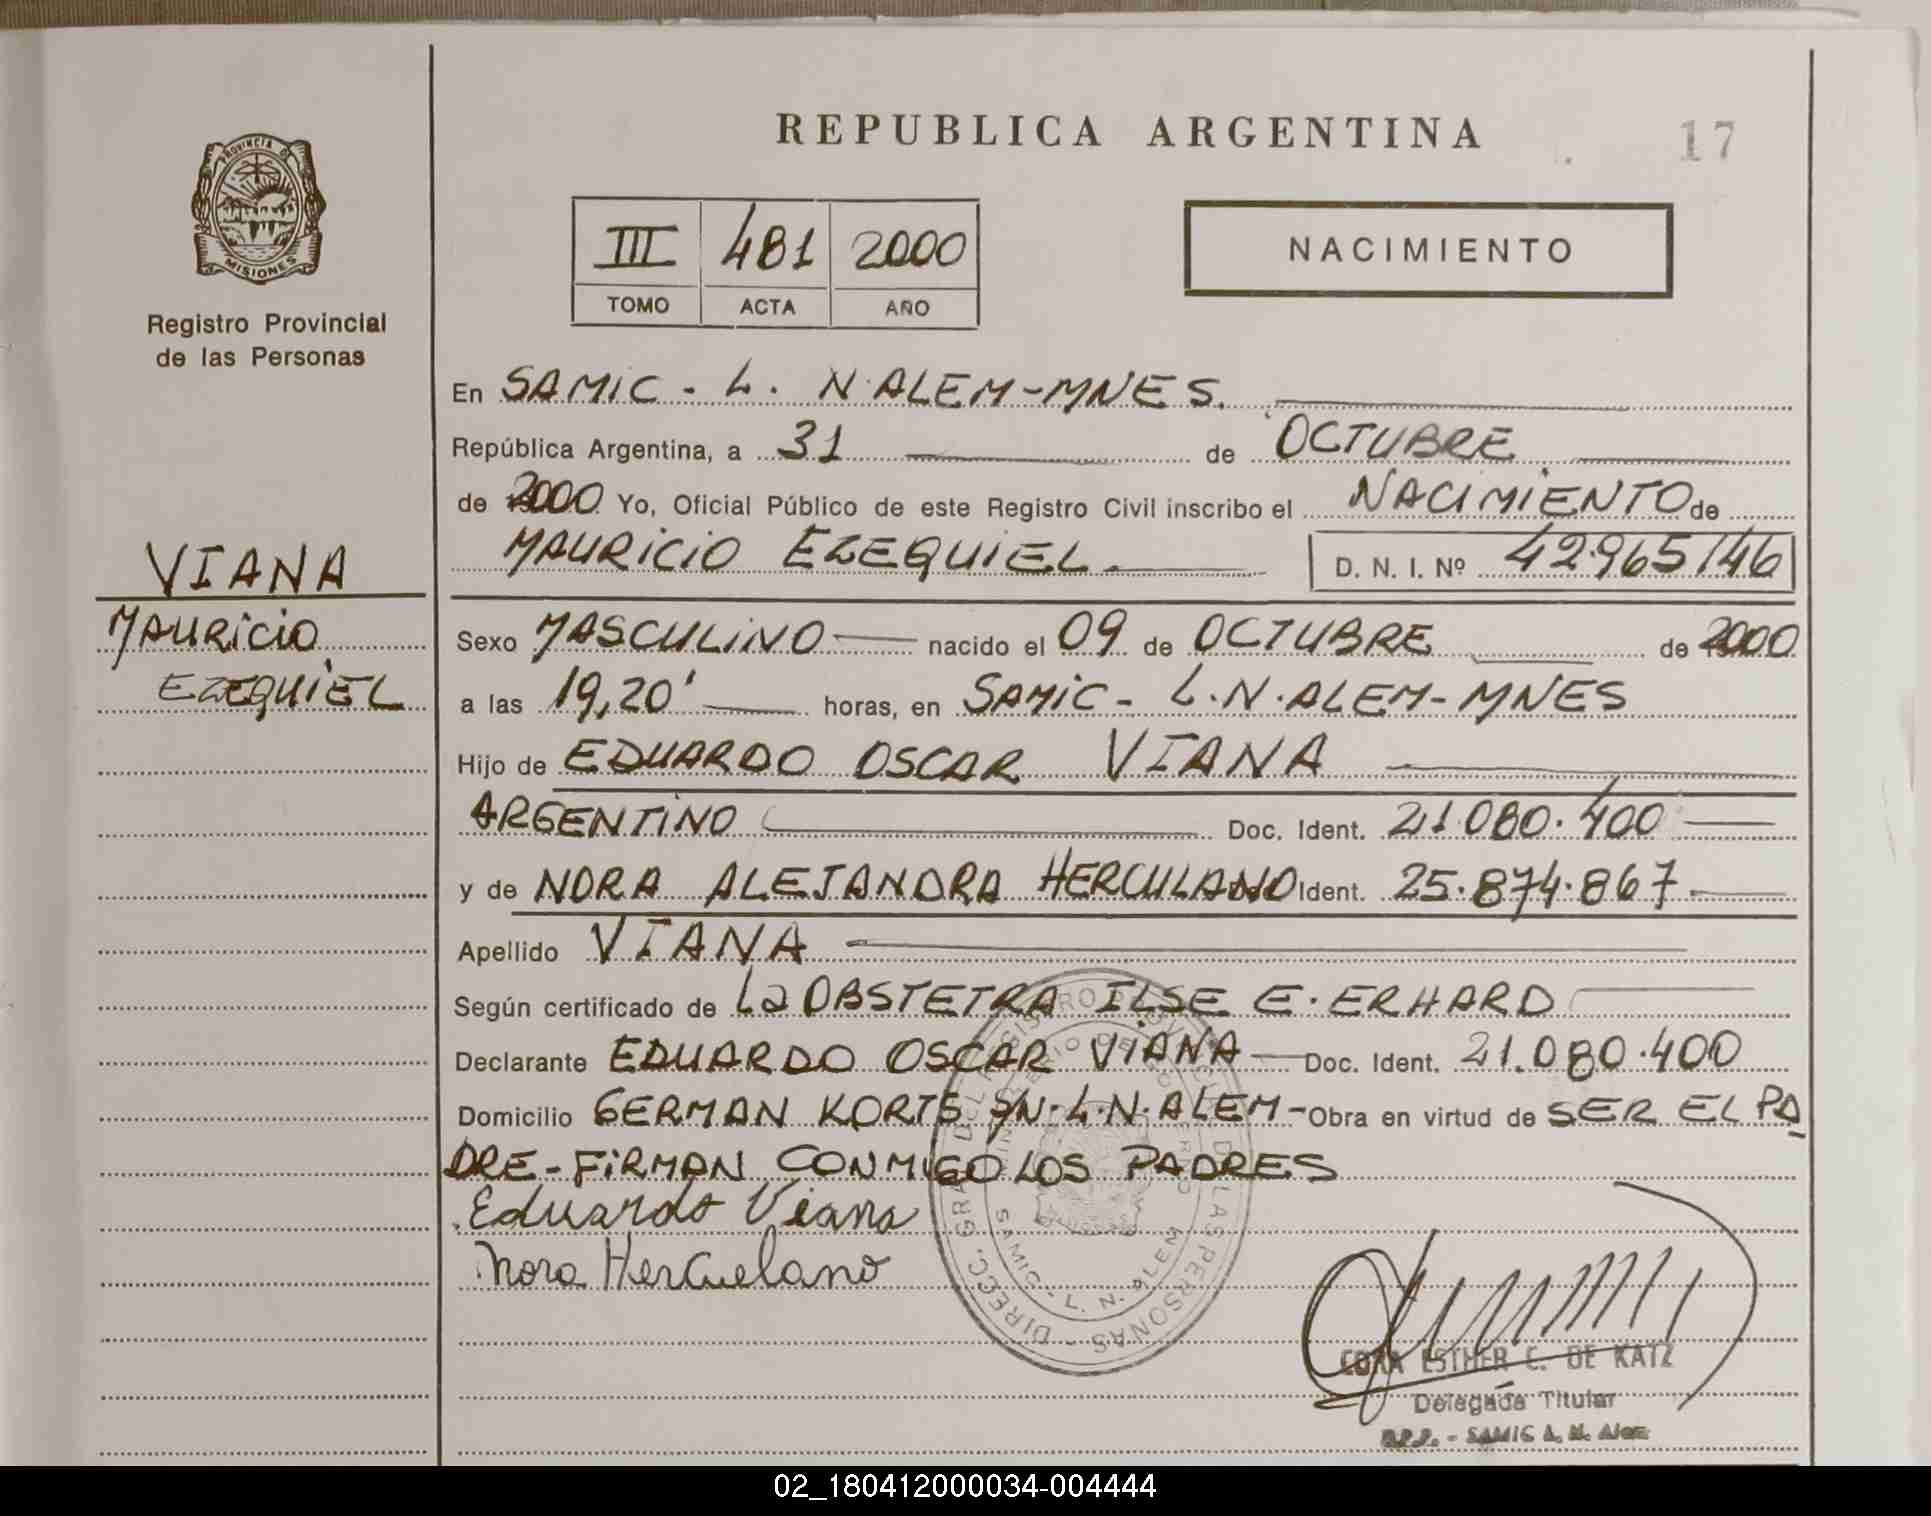 REPUBLICA ARGENTINA
17
PROVINCIA DE
MISIONES
Registro Provincial
de las Personas
III 481 2000
TOMO ACTA AÑO
NACIMIENTO
En SAMIC - L. N. ALEM - MNES.
República Argentina, a 31 de OCTUBRE
de 2000 Yo, Oficial Público de este Registro Civil inscribo el NACIMIENTO de
MAURICIO EZEQUIEL. D. N. I. Nº 42.965146
VIANA
MAURICIO
EZEQUIEL
Sexo MASCULINO nacido el 09 de OCTUBRE de 2000
a las 19,20' horas, en SAMIC - L.N. ALEM - MNES
Hijo de EDUARDO OSCAR VIANA
ARGENTINO Doc. Ident. 21.080.400
y de NORA ALEJANDRA HERCULANO Ident. 25.874.867
Apellido VIANA
Según certificado de La OBSTETRA ILSE E. ERHARD
Declarante EDUARDO OSCAR VIANA Doc. Ident. 21.080.400
Domicilio GERMAN KORTS S/N. L.N. ALEM - Obra en virtud de SER EL PA
DRE - FIRMAN CONMIGO LOS PADRES
Eduardo Viana
Nora Herculano
DIRECC. GRAL DEL REGISTRO PROVINCIAL DE LAS PERSONAS
SAMIC - L. N. ALEM
CORA ESTHER C. DE KATZ
Delegada Titular
R.P.P. - SAMIC L. N. Alem
02_180412000034-004444